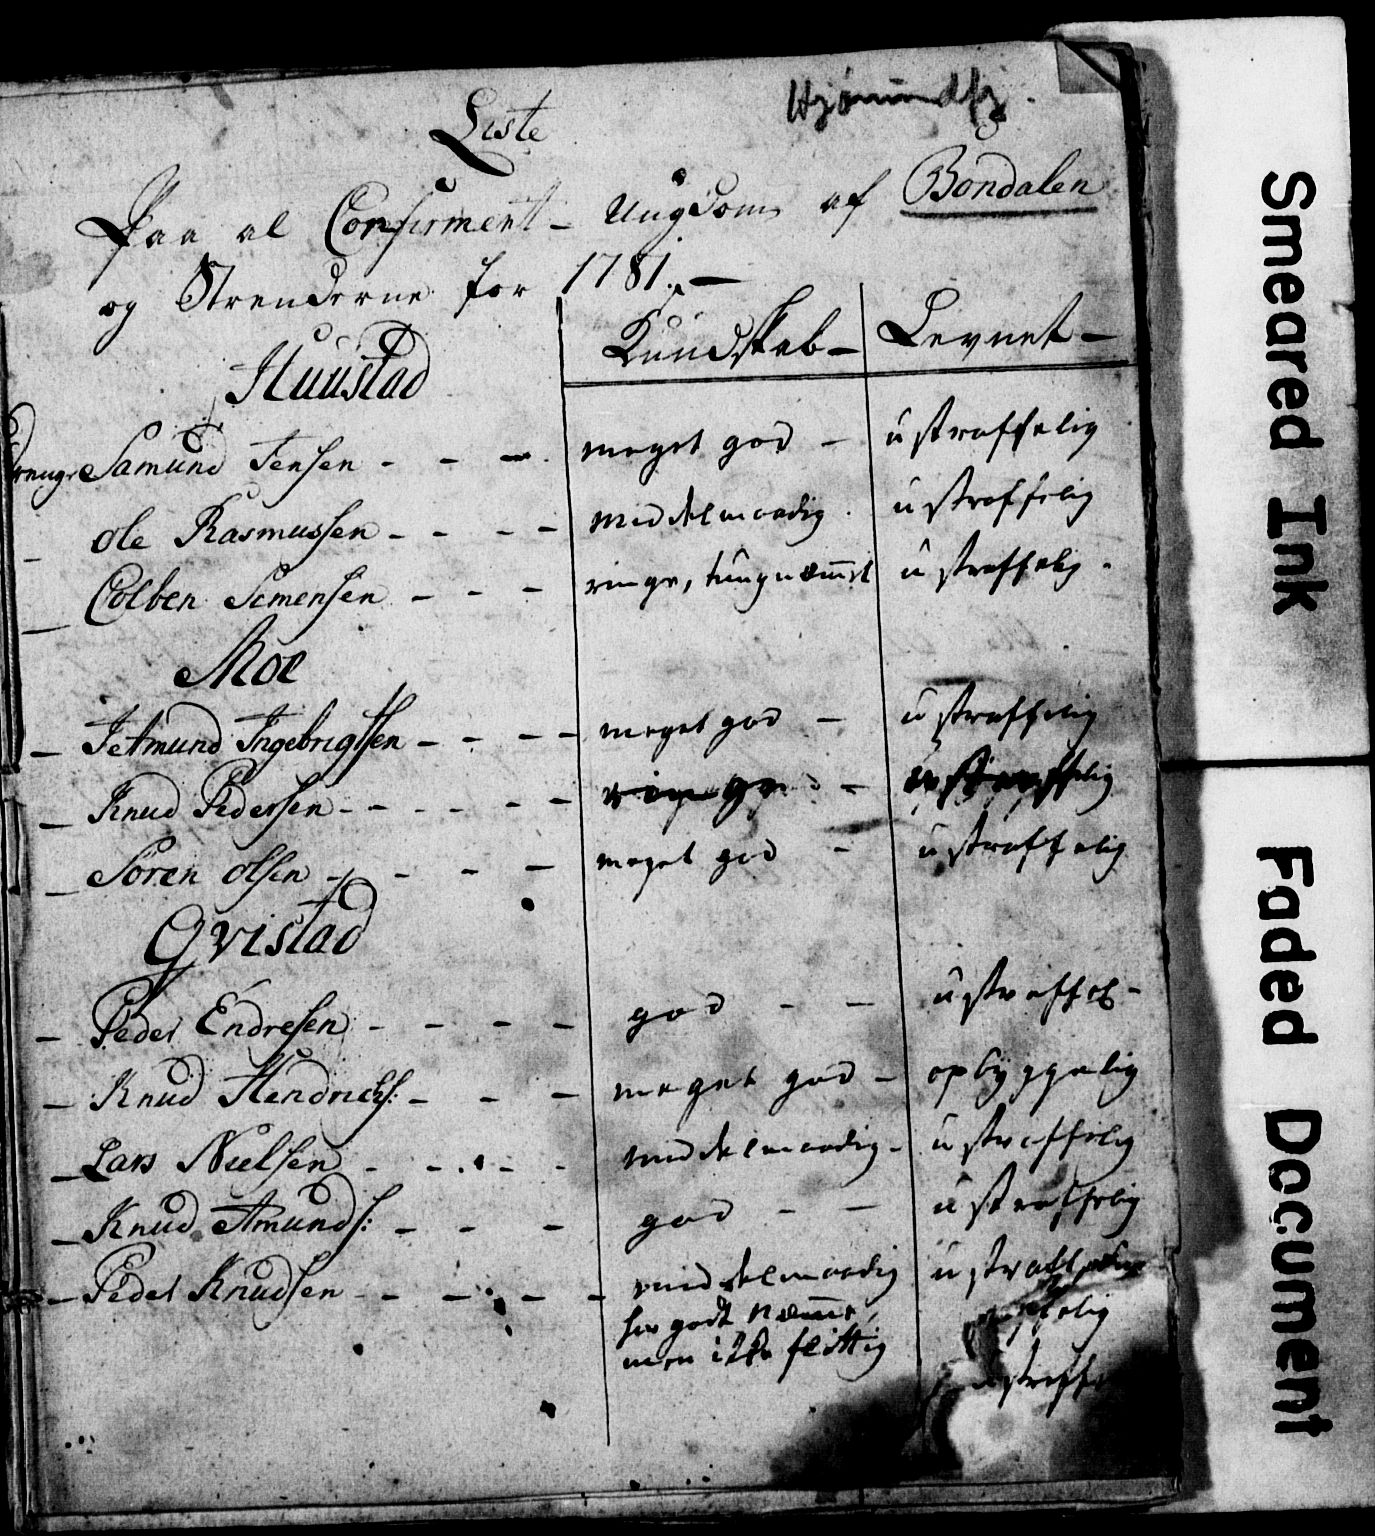 Hjørundfj.
Liste
Paa al Confirment-Ungdom af Bondalen
og Strenderne for 1781.
Kundskab - Levnet -
Huustad
Drenge Samund Jensen - - - meget god - ustraffelig
- Ole Rasmussen - - - - middelmaadig. ustraffelig
- Colben Simensen - - - ringe, tungnæmet ustraffelig.
Moe
- Jetmund Ingebrigtsen - - - - meget god - ustraffelig
- Knud Pedersen - - - - - -
- Søren Olsen - - - - meget god - ustraffelig
Qvistad
- Peder Endresen - - - - god - - ustraffel -
- Knud Hendrichs: - - - meget god - opbyggelig
- Lars Nielsen - - - - middelmaadig - ustraffelig
- Knud Amunds: - - - god - - ustraffelig
- Peder Knudsen - - - - - middelmaadig
har godt Næmme,
men ikke flittig
Smeared Ink
Faded Document